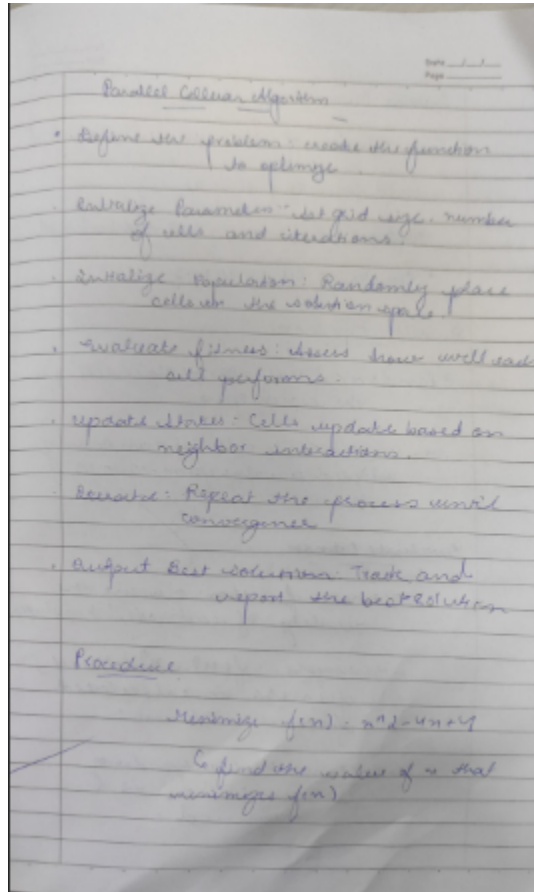 Date __/__/__
Page
Parallel Cellular Algorithm
• Define the problem: create the function
to optimize.
Initialize Parameters: set grid size, number
of cells and iterations.
Initialize Population: Randomly place
cells in the solution space.
• Evaluate fitness: Assess how well each
cell performs.
• update states: Cells update based on
neighbor interactions.
Iterate: Repeat the process until
convergence
• Output Best solution: Track and
report the best solution
Procedure
Minimize f(x) = x^2-4x+4
find the value of x that
minimizes f(x)